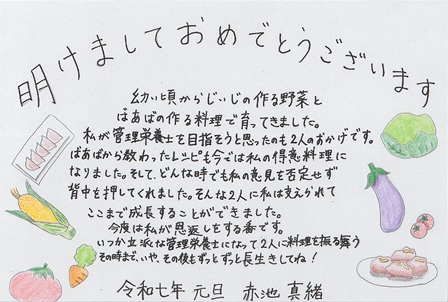 明けましておめでとうございます
幼い頃からじいじの作る野菜と
ばあばの作る料理で育ってきました。
私が管理栄養士を目指そうと思ったのも2人のおかげです。
ばあばから教わったレシピも今では私の得意料理に
なりました。そして、どんな時でも私の意見を否定せず
背中を押してくれました。そんな2人に私は支えられて
ここまで成長することができました。
今度は私が恩返しをする番です。
いつか立派な管理栄養士になって2人に料理を振る舞う
その時まで、いや、その後もずっとずっと長生きしてね！
令和七年 元旦 赤池 真緒